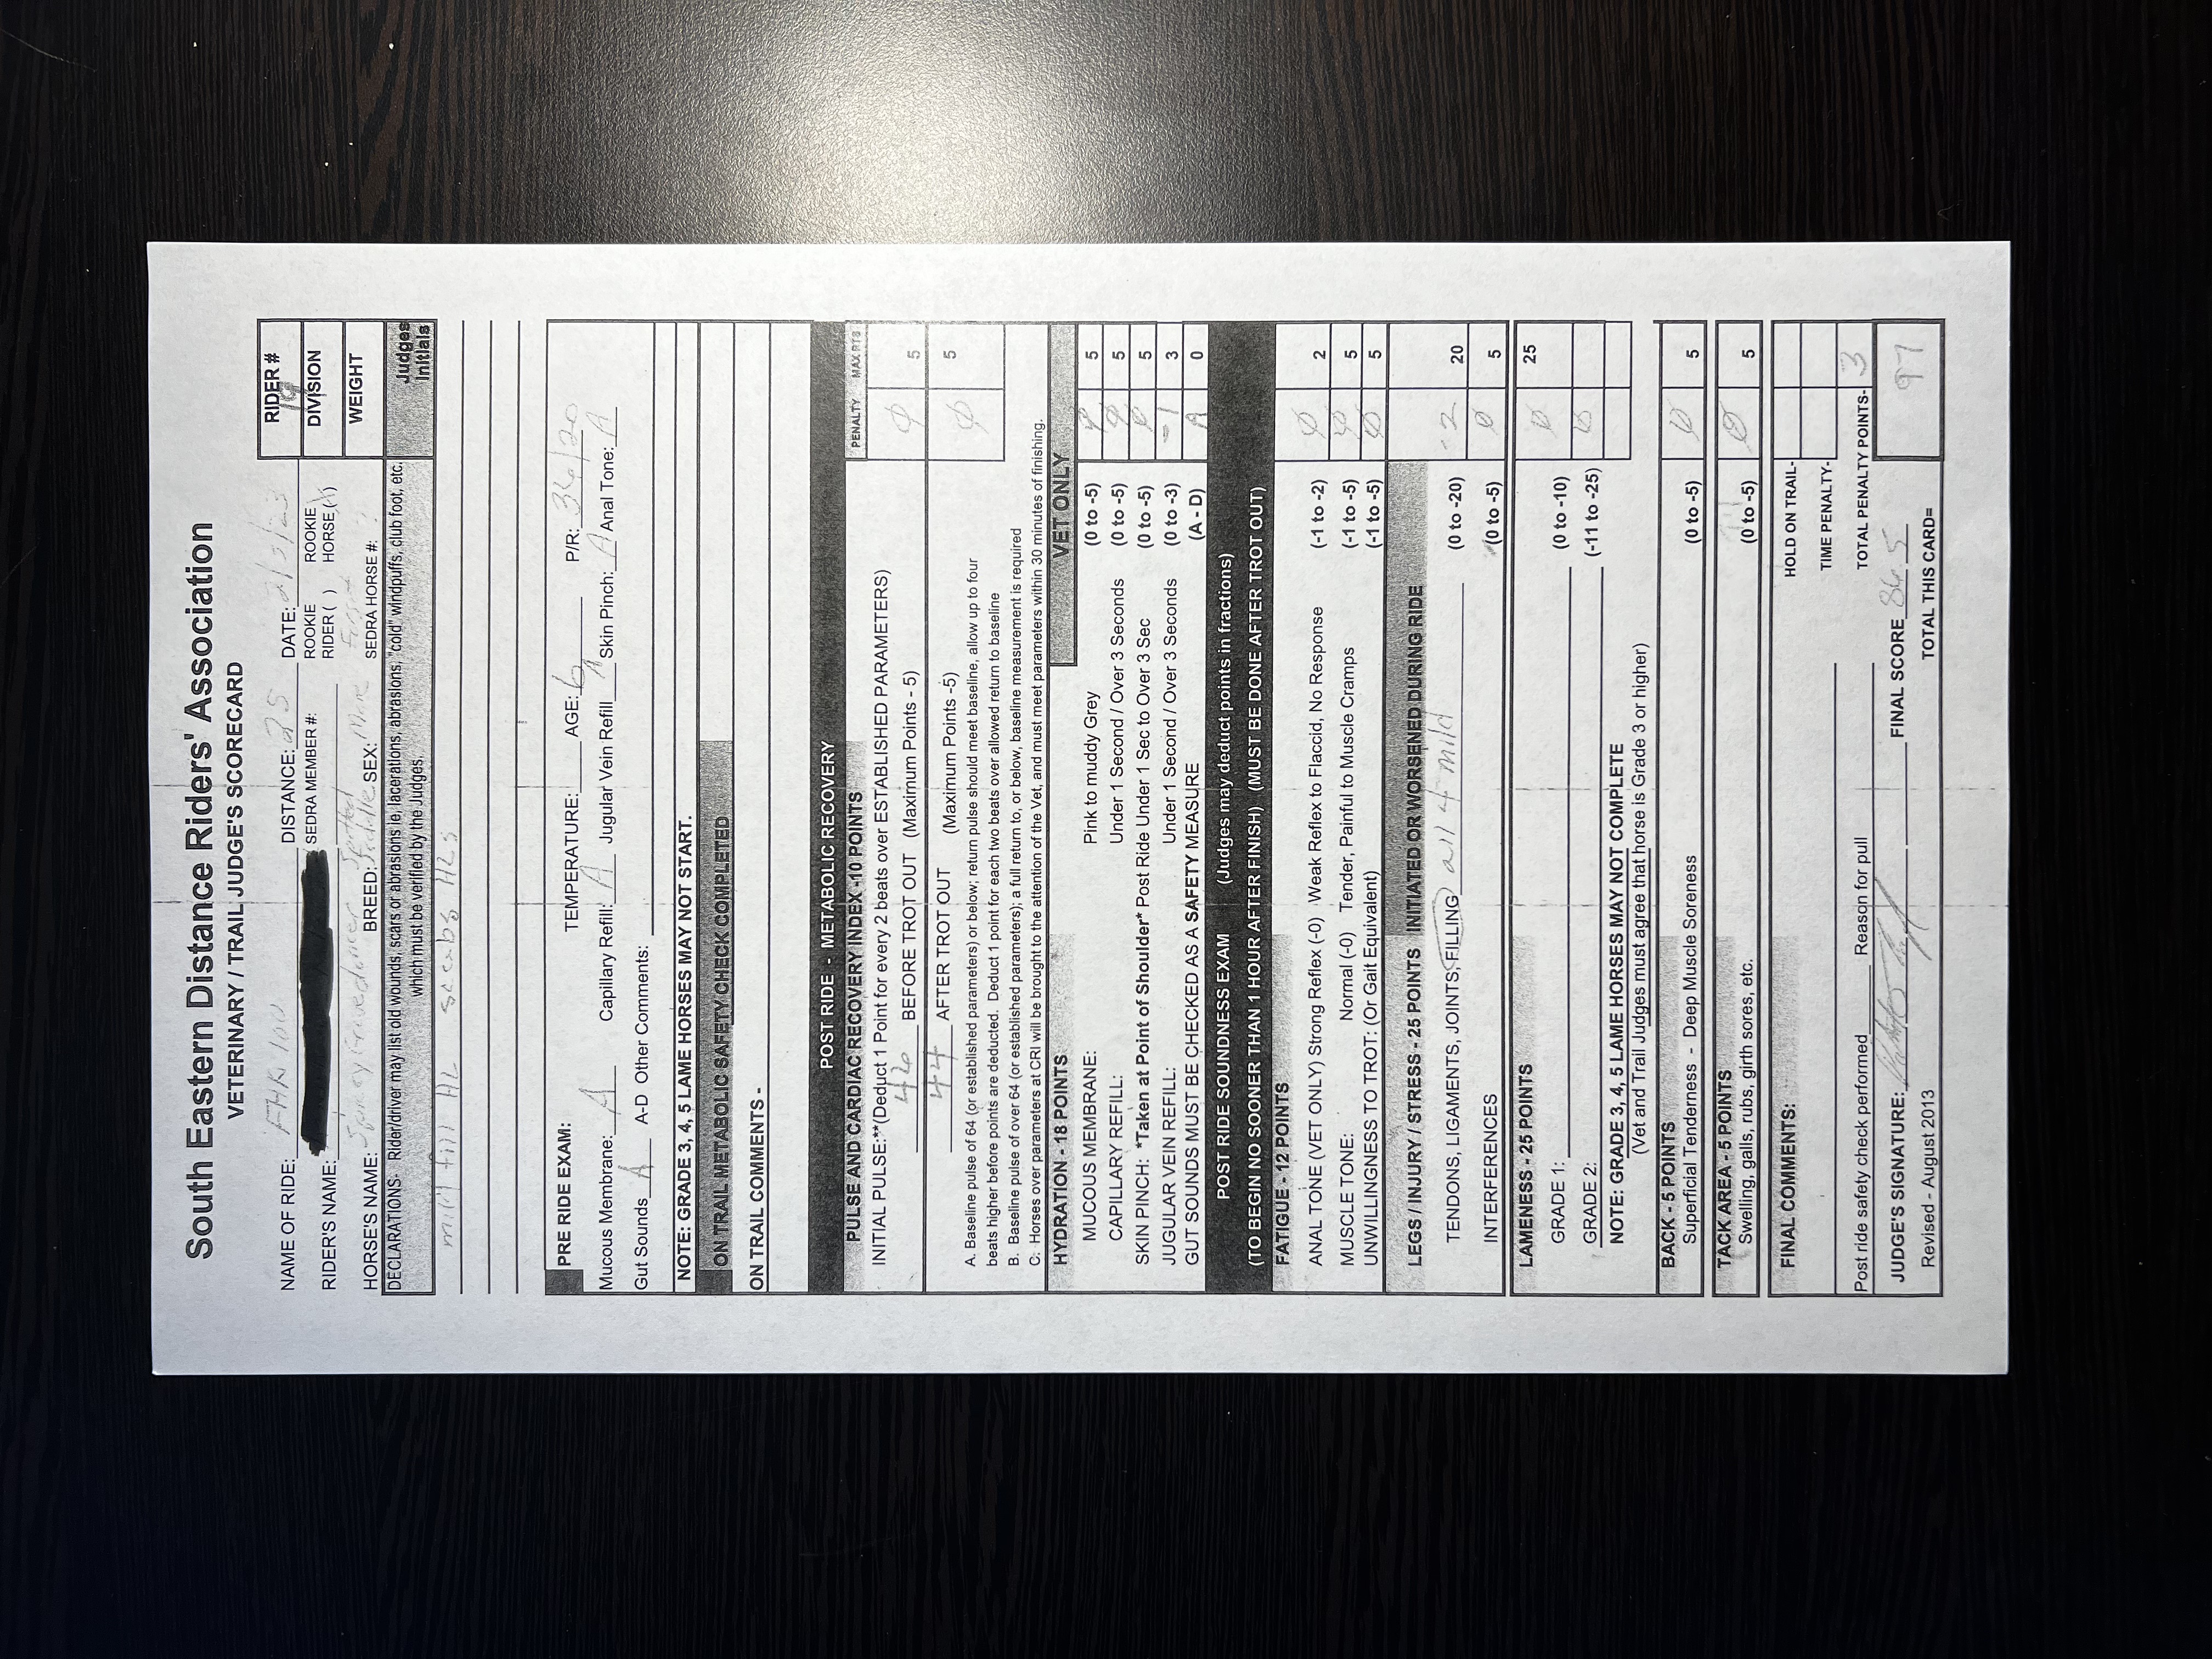 South Eastern Distance Riders' Association
VETERINARY / TRAIL JUDGE'S SCORECARD
NAME OF RIDE: FHA 100 DISTANCE: 25 DATE: 2/3/23 RIDER # 19
RIDER'S NAME: SEDRA MEMBER #: ROOKIE RIDER ( ) ROOKIE HORSE (X) DIVISION
HORSE'S NAME: BREED: Spotted Saddle SEX: Mare SEDRA HORSE #: WEIGHT
DECLARATIONS- Rider/driver may list old wounds, scars or abrasions ie, lacerations, abrasions, "cold" windpuffs, club foot, etc. Judges
which must be verified by the Judges. Initials
mild fill HL scabs HLs
PRE RIDE EXAM: TEMPERATURE: AGE: 6 P/R: 36/20
Mucous Membrane: A Capillary Refill: A Jugular Vein Refill A Skin Pinch: A Anal Tone: A
Gut Sounds A A-D Other Comments:
NOTE: GRADE 3, 4, 5 LAME HORSES MAY NOT START.
ON TRAIL METABOLIC SAFETY CHECK COMPLETED
ON TRAIL COMMENTS -
POST RIDE - METABOLIC RECOVERY
PULSE AND CARDIAC RECOVERY INDEX -10 POINTS PENALTY MAX PTS
INITIAL PULSE:**(Deduct 1 Point for every 2 beats over ESTABLISHED PARAMETERS)
46 BEFORE TROT OUT (Maximum Points - 5) Ø 5
44 AFTER TROT OUT (Maximum Points -5) Ø 5
A. Baseline pulse of 64 (or established parameters) or below; return pulse should meet baseline, allow up to four
beats higher before points are deducted. Deduct 1 point for each two beats over allowed return to baseline
B. Baseline pulse of over 64 (or established parameters); a full return to, or below, baseline measurement is required
C. Horses over parameters at CRI will be brought to the attention of the Vet, and must meet parameters within 30 minutes of finishing.
HYDRATION - 18 POINTS VET ONLY
MUCOUS MEMBRANE: Pink to muddy Grey (0 to -5) Ø 5
CAPILLARY REFILL: Under 1 Second / Over 3 Seconds (0 to -5) Ø 5
SKIN PINCH: *Taken at Point of Shoulder* Post Ride Under 1 Sec to Over 3 Sec (0 to -5) Ø 5
JUGULAR VEIN REFILL: Under 1 Second / Over 3 Seconds (0 to -3) -1 3
GUT SOUNDS MUST BE CHECKED AS A SAFETY MEASURE (A - D) A 0
POST RIDE SOUNDNESS EXAM (Judges may deduct points in fractions)
(TO BEGIN NO SOONER THAN 1 HOUR AFTER FINISH) (MUST BE DONE AFTER TROT OUT)
FATIGUE - 12 POINTS
ANAL TONE (VET ONLY) Strong Reflex (-0) Weak Reflex to Flaccid, No Response (-1 to -2) Ø 2
MUSCLE TONE: Normal (-0) Tender, Painful to Muscle Cramps (-1 to -5) Ø 5
UNWILLINGNESS TO TROT: (Or Gait Equivalent) (-1 to -5) Ø 5
LEGS / INJURY / STRESS - 25 POINTS INITIATED OR WORSENED DURING RIDE
TENDONS, LIGAMENTS, JOINTS, FILLING all 4 mild (0 to -20) -2 20
INTERFERENCES (0 to -5) Ø 5
LAMENESS - 25 POINTS 25
GRADE 1: (0 to -10) Ø
GRADE 2: (-11 to -25) Ø
NOTE: GRADE 3, 4, 5 LAME HORSES MAY NOT COMPLETE
(Vet and Trail Judges must agree that horse is Grade 3 or higher)
BACK - 5 POINTS
Superficial Tenderness - Deep Muscle Soreness (0 to -5) Ø 5
TACK AREA - 5 POINTS
Swelling, galls, rubs, girth sores, etc. (0 to -5) Ø 5
FINAL COMMENTS: HOLD ON TRAIL-
TIME PENALTY-
Post ride safety check performed Reason for pull TOTAL PENALTY POINTS- 3
JUDGE'S SIGNATURE: FINAL SCORE 86.5 97
Revised - August 2013 TOTAL THIS CARD=